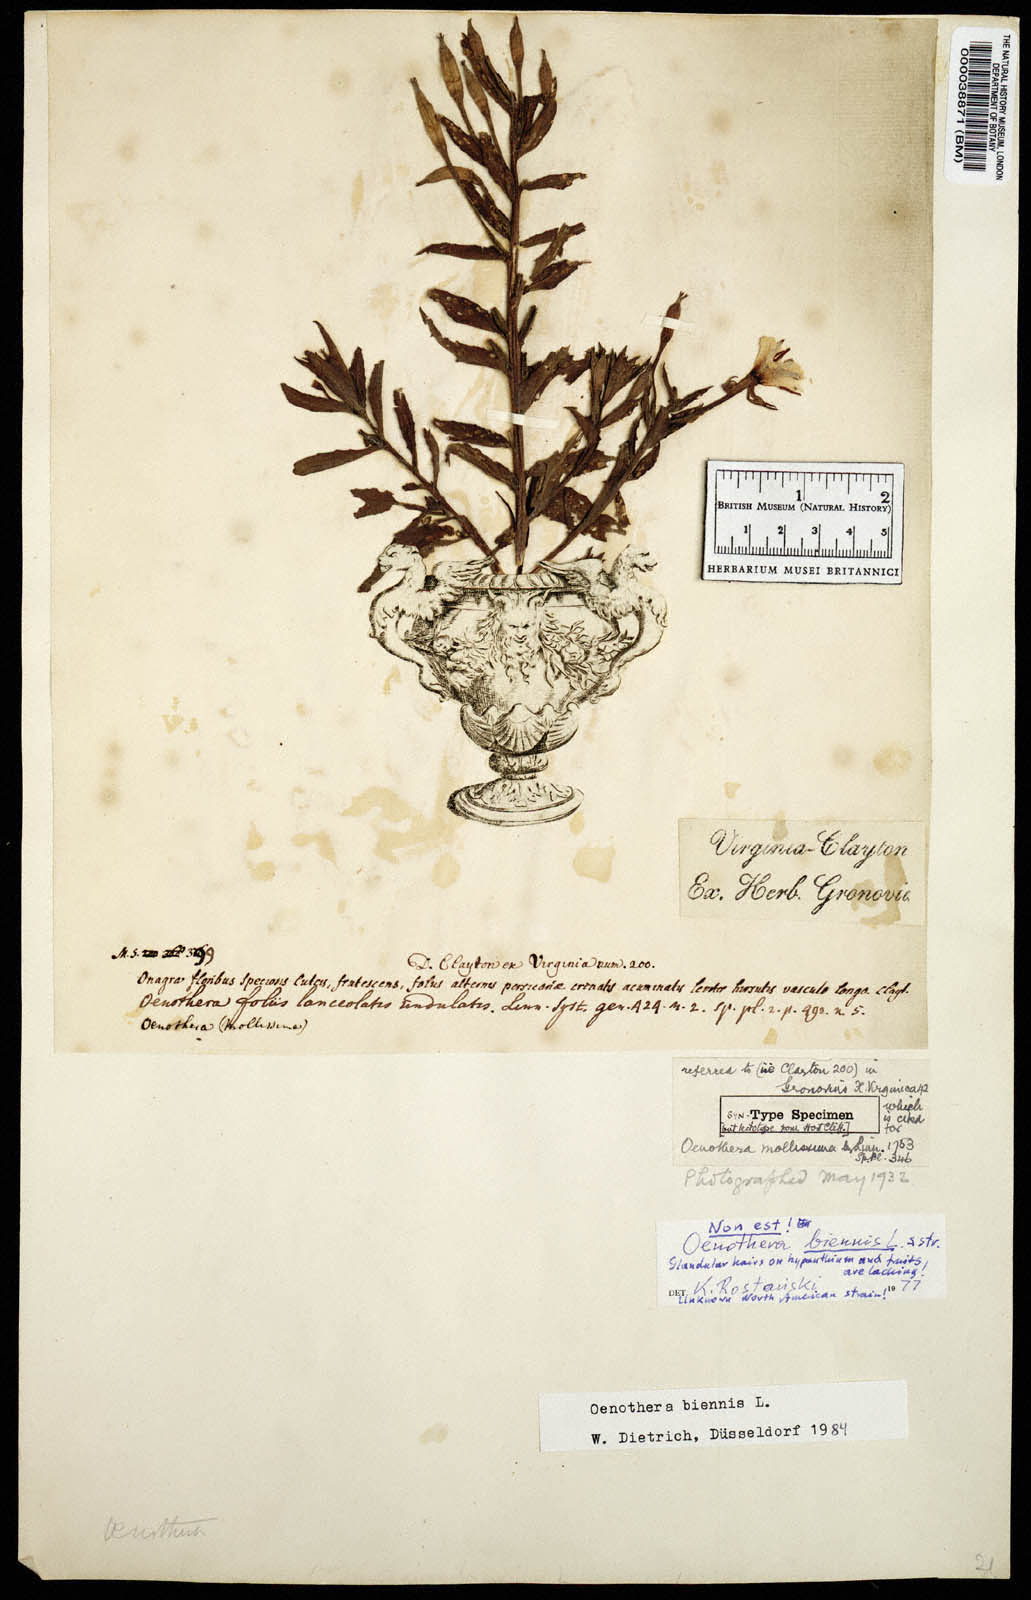 THE NATURAL HISTORY MUSEUM, LONDON
DEPARTMENT OF BOTANY
000038871 (BM)
1 2
BRITISH MUSEUM (NATURAL HISTORY)
1 2 3 4 5
HERBARIUM MUSEI BRITANNICI
Virginia-Clayton
Ex. Herb. Gronovii
M. S. 399
D. Clayton ex Virginia num. 200.
Onagra floribus speciosis luteis, frutescens, foliis alternis persicariæ crenatis acuminatis leviter hirsutis vasculo longo. Clayt.
Oenothera foliis lanceolatis undulatis. Linn. Syst. gen. 424. n. 2. Sp. pl. 2. p. 492. n. 5.
Oenothera (mollissima)
referred to (no Clayton 200) in
Gronovius Fl. Virginica 42
which
is cited
for
SYN-Type Specimen
Oenothera mollissima by Linn. 1753
Sp. Pl. 346
Photographed May 1932
Non est!
Oenothera biennis L. s. str.
Glandular hairs on hypanthium and fruits
are lacking!
DET. K. Rostański 1977
Unknown North American strain!
Oenothera biennis L.
W. Dietrich, Düsseldorf 1984
Œnothera
21